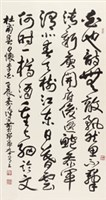 白也詩無敵飄然思不羣
清新庾開府俊逸鮑參軍
渭北春天樹江東日暮雲
何時一樽酒重與細論文
杜甫春日憶李白